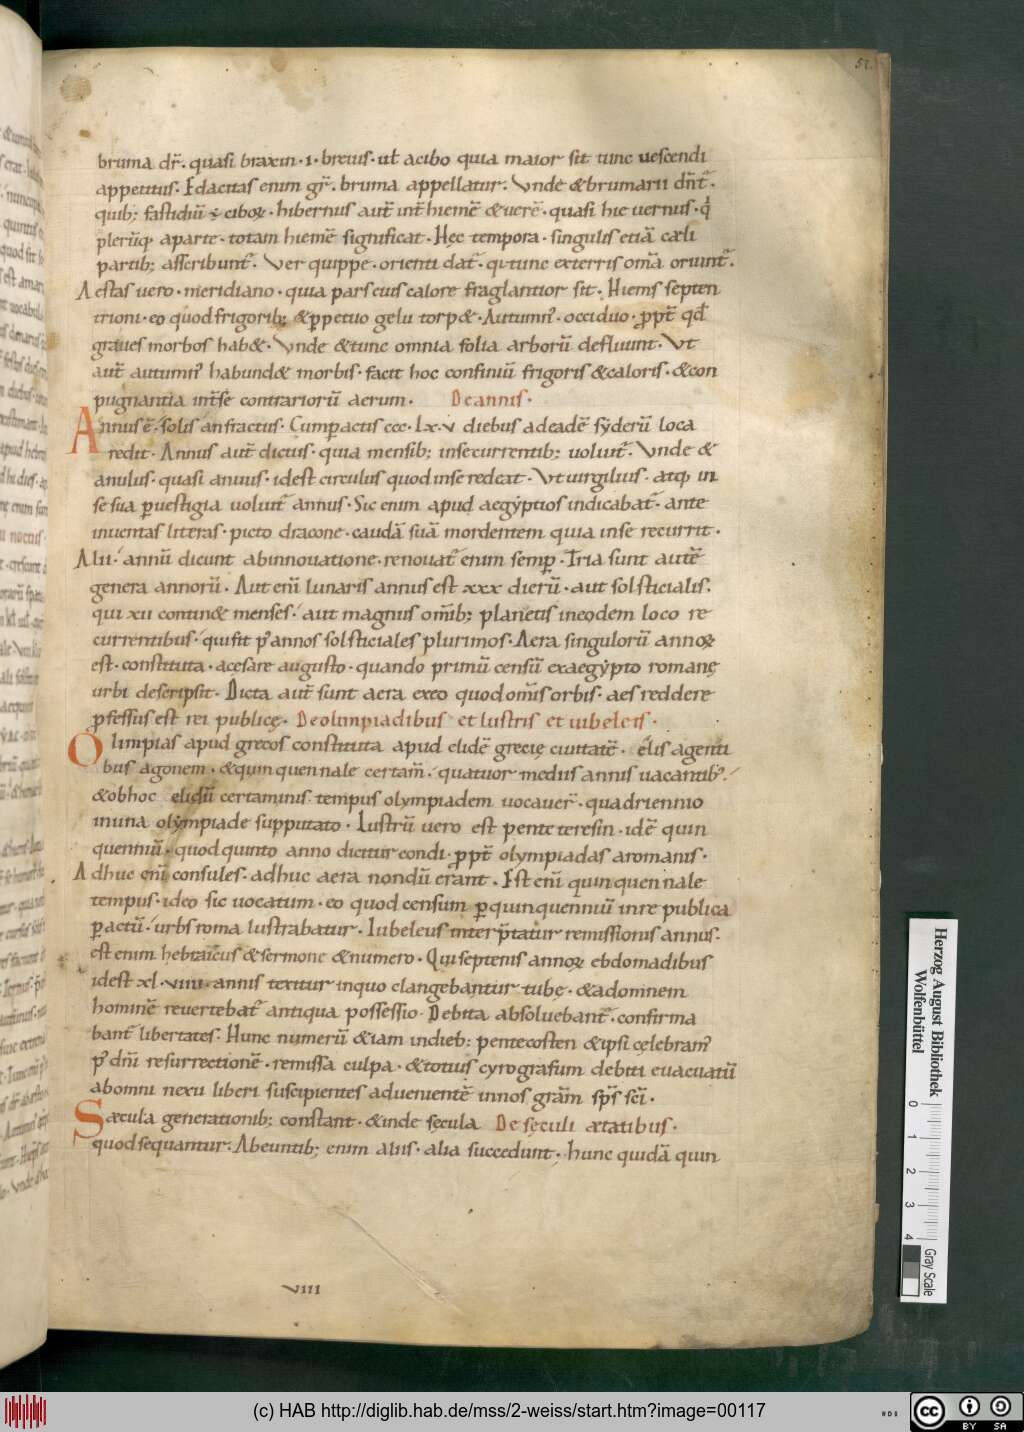 51.
bruma dr̄. quasi braxin · i · breuis · ut̄ acibo quia maior sit tunc uescendi
appetitus · Edacitas enim gr̄ · bruma appellatur. Vnde &brumarii dn̄t᷒ ·
quib; fastidiū ÷ciboꝝ · hibernus aut̄ int̄ hiemē &uerē · quasi hic uernus · q̄
plerūq; aparte · totam hiemē significat · Hęc tempora · singulis etiā cęli
partib; asscribunt᷒. Ver quippe · orienti dat᷒ · qi tunc exterris om̄a oriunt᷒.
Aestas uero · meridiano · quia pars eius calore fraglantior sit · Hiems septen
trioni · eo quod frigorib; &ꝑpetuo gelu torp& · Autumn᷒ · occiduo · ꝓpt̄ qd̄
graues morbos hab& · Vnde &tunc omnia folia arborū defluunt · Vt
aut̄ autumn᷒ habund& morbis · facit hoc confiniū frigoris &caloris · &con
pugnantia int̄se contrariorū aerum · De annis ·
Annus ē · solis anfractus · Cumꝑactis ccc · Lx · v diebus adeadē syderū loca
redit · Annus aut̄ dictus · quia mensib; inse currentib; uoluit᷒ · Vnde &
anulus · quasi anuus · idest circulus quod inse redeat · Vt uirgilius · atq; in
se sua ꝑuestigia uoluit᷒ annus · Sic enim apud aegyptios indicabat᷒ · ante
inuentas literas · picto dracone · caudā suā mordentem quia inse recurrit ·
Alii · annū dicunt abinnouatione · renouat᷒ enim semꝑ · Tria sunt autē
genera annorū · Aut eni̅ lunaris annus est xxx dierū · aut solsticialis ·
qui xii contin& menses · aut magnus om̄ib; planetis ineodem loco re
currentibus · qui fit p᷒ annos solsticiales plurimos · Aera singulorū annoꝝ
est · constituta · acesare augusto · quando primū censū exaegypto romanę
urbi descripsit · Dicta aut̄ sunt aera exeo quod om̄is orbis · aes reddere
ꝓfessus est rei publicę · De olimpiadibus et lustris et iubeleis ·
Olimpias apud grecos constituta apud elidē grecię ciuitatē · elis agenti
bus agonem · &quinquennale certam̄ · quatuor mediis annis uacantib᷒ ·
&obhoc elidū certaminis tempus olympiadem uocauer̄ · quadriennio
inuna olympiade supputato · Lustrū uero est penteteresin · idē quin
quenniū · quod quinto anno dicitur condi · ꝓpt̄ olympiadas aromanis ·
Adhuc eni̅ consules · adhuc aera nondū erant · Est eni̅ quinquennale
tempus · ideo sic uocatum · eo quod censum ꝑquinquenniū inre publica
ꝑactū · urbs roma lustrabatur · Iubeleus interp̄tatur remissionis annus ·
est enim hebraicus &sermone &numero · Qui septenis annoꝝ ebdomadibus
idest xl · viiii · annis texitur inquo clangebantur tubę · &adomnem
hominē reuertebat᷒ antiqua possessio · Debita absoluebant᷒ · confirma
bant᷒ libertates · Hunc numerū &iam indieb; pentecosten &ipsi celebram᷒
p᷒ dn̄i resurrectionē · remissa culpa · &totius cyrografum debiti euacuatū
abomni nexu liberi suscipientes aduenientē innos grām sp̄s sc̄i ·
Sæcula generationib; constant · &inde sęcula De sęculi ætatibus ·
quod sequantur · Abeuntib; enim aliis · alia succedunt · hunc quidā quin
VIII
Herzog August Bibliothek
Wolfenbüttel
0 1 2 3 4
Gray Scale
(c) HAB http://diglib.hab.de/mss/2-weiss/start.htm?image=00117
cc BY SA